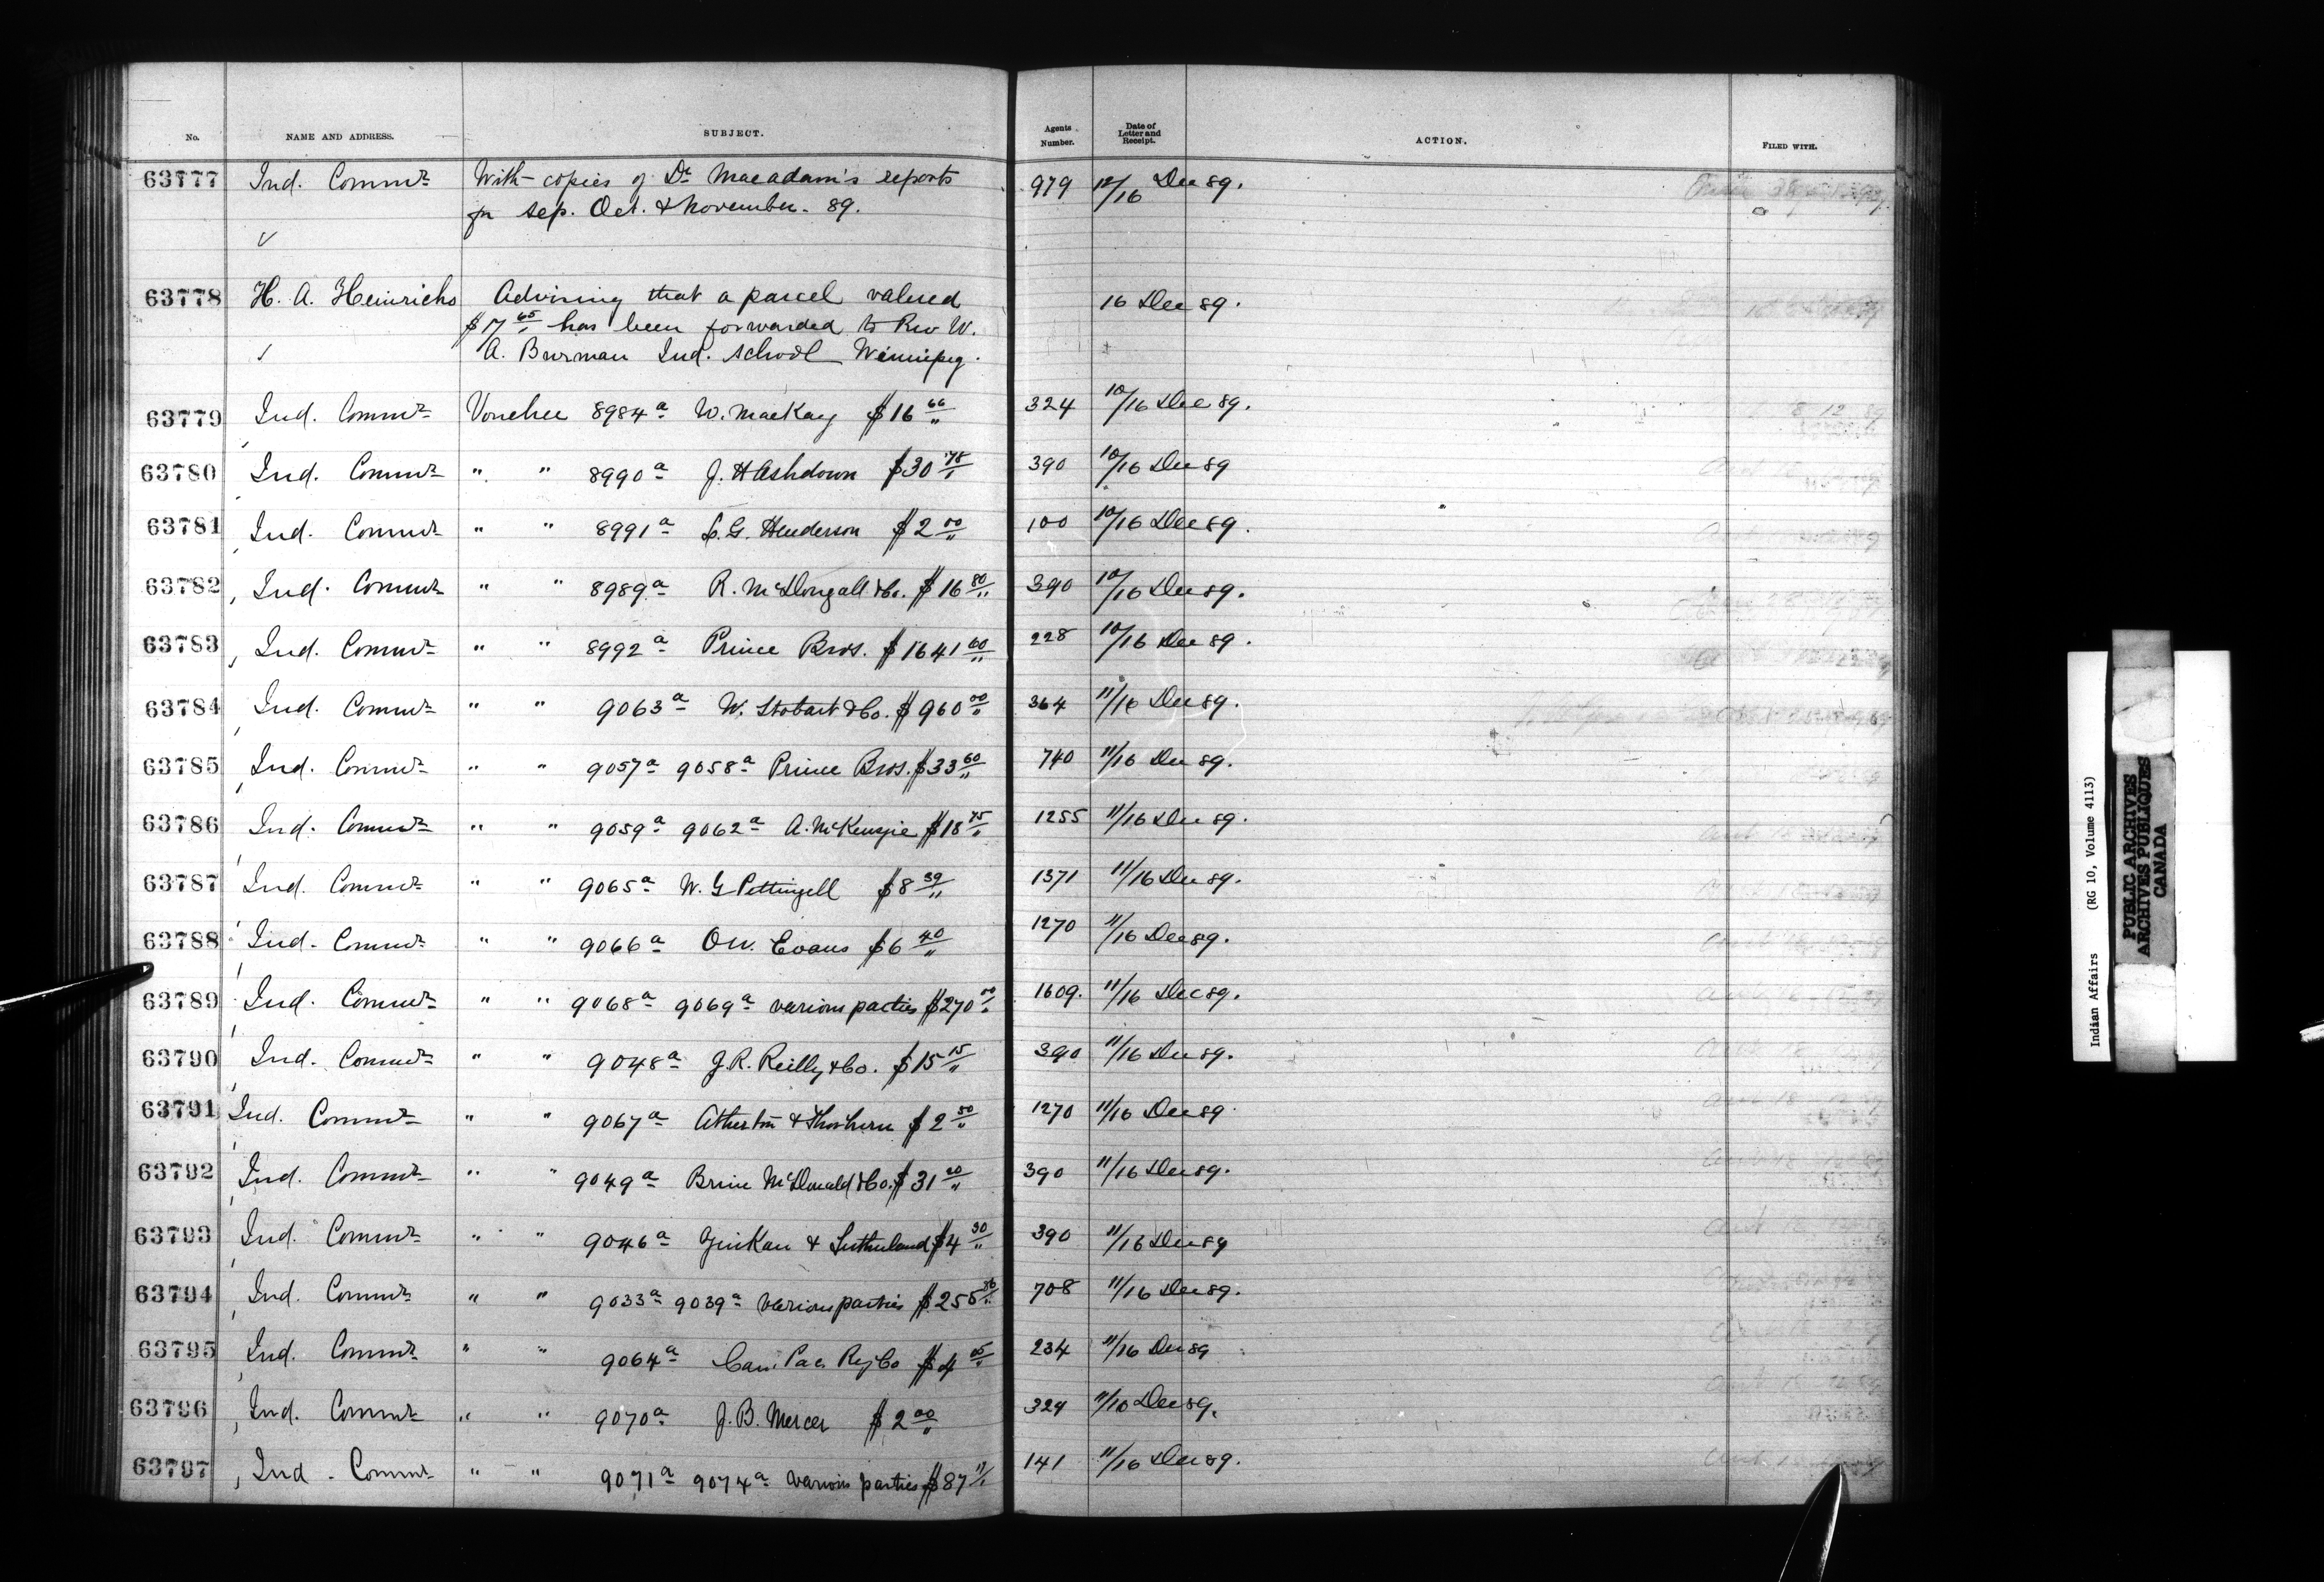 No. NAME AND ADDRESS. SUBJECT. Agents Number. Date of Letter and Receipt. ACTION. FILED WITH.
63777 Ind. Commr With copies of Dr Macadam's reports 979 12/16 Dec 89.
for Sep. Oct. & November. 89.
63778 H. A. Heinrichs Advising that a parcel valued 16 Dec 89.
$17 65/" has been forwarded to Rev W.
A. Burman Ind. School Winnipeg.
63779 Ind. Commr Voucher 8984a W. MacKay $16 66/" 324 10/16 Dec 89.
63780 Ind. Commr " " 8990a J. H Ashdown $30 78/" 390 10/16 Dec 89
63781 Ind. Commr " " 8991a G. Henderson $2 00/" 100 10/16 Dec 89.
63782 Ind. Commr " " 8989a R. McDougall & Co. $16 80/" 390 10/16 Dec 89.
63783 Ind. Commr " " 8992a Prince Bros. $1641 60/" 228 10/16 Dec 89.
63784 Ind. Commr " " 9063a W. Stobart & Co. $960 00/" 364 11/16 Dec 89.
63785 Ind. Commr " " 9057a 9058a Prince Bros. $33 60/" 740 11/16 Dec 89.
63786 Ind. Commr " " 9059a 9062a A. McKenzie $18 75/" 1255 11/16 Dec 89.
63787 Ind. Commr " " 9065a W. G Pettingell $8 39/" 1371 11/16 Dec 89.
63788 Ind. Commr " " 9066a O W. Evans $6 40/" 1270 11/16 Dec 89.
63789 Ind. Commr " " 9068a 9069a various parties $270 00/" 1609. 11/16 Dec 89.
63790 Ind. Commr " " 9048a J. R. Reilly & Co. $15 15/" 390 11/16 Dec 89.
63791 Ind. Commr " " 9067a Atherton & $2 50/" 1270 11/16 Dec 89.
63792 Ind. Commr " " 9049a McDonald & Co. $31 00/" 390 11/16 Dec 89.
63793 Ind. Commr " " 9046a & Sutherland $4 30/" 390 11/16 Dec 89
63794 Ind. Commr " " 9033a 9039a various parties $255 36/" 708 11/16 Dec 89.
63795 Ind. Commr " " 9064a Can. Pac. Ry Co $4 05/" 234 11/16 Dec 89
63796 Ind. Commr " " 9070a J. B. Mercer $2 00/" 324 11/16 Dec 89.
63797 Ind. Commr " " 9071a 9074a various parties $87 17/" 141 11/16 Dec 89.
Indian Affairs (RG 10, Volume 4113)
PUBLIC ARCHIVES
ARCHIVES PUBLIQUES
CANADA